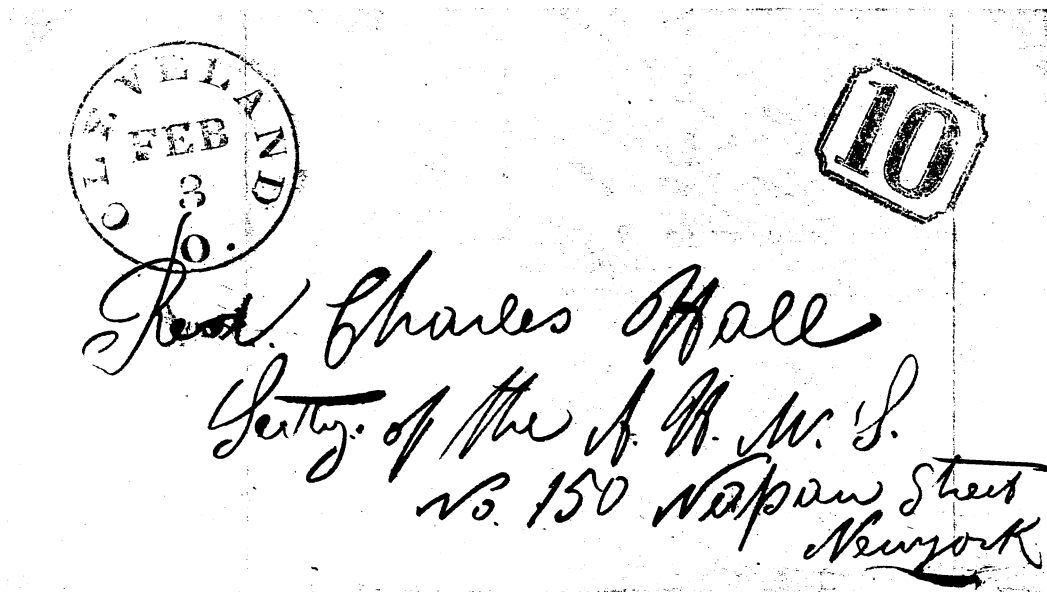 CLEVELAND O.
FEB
3
10
Rev. Charles Hall
Secty. of the A. H. M. S.
No. 150 Napau Street
Newyork